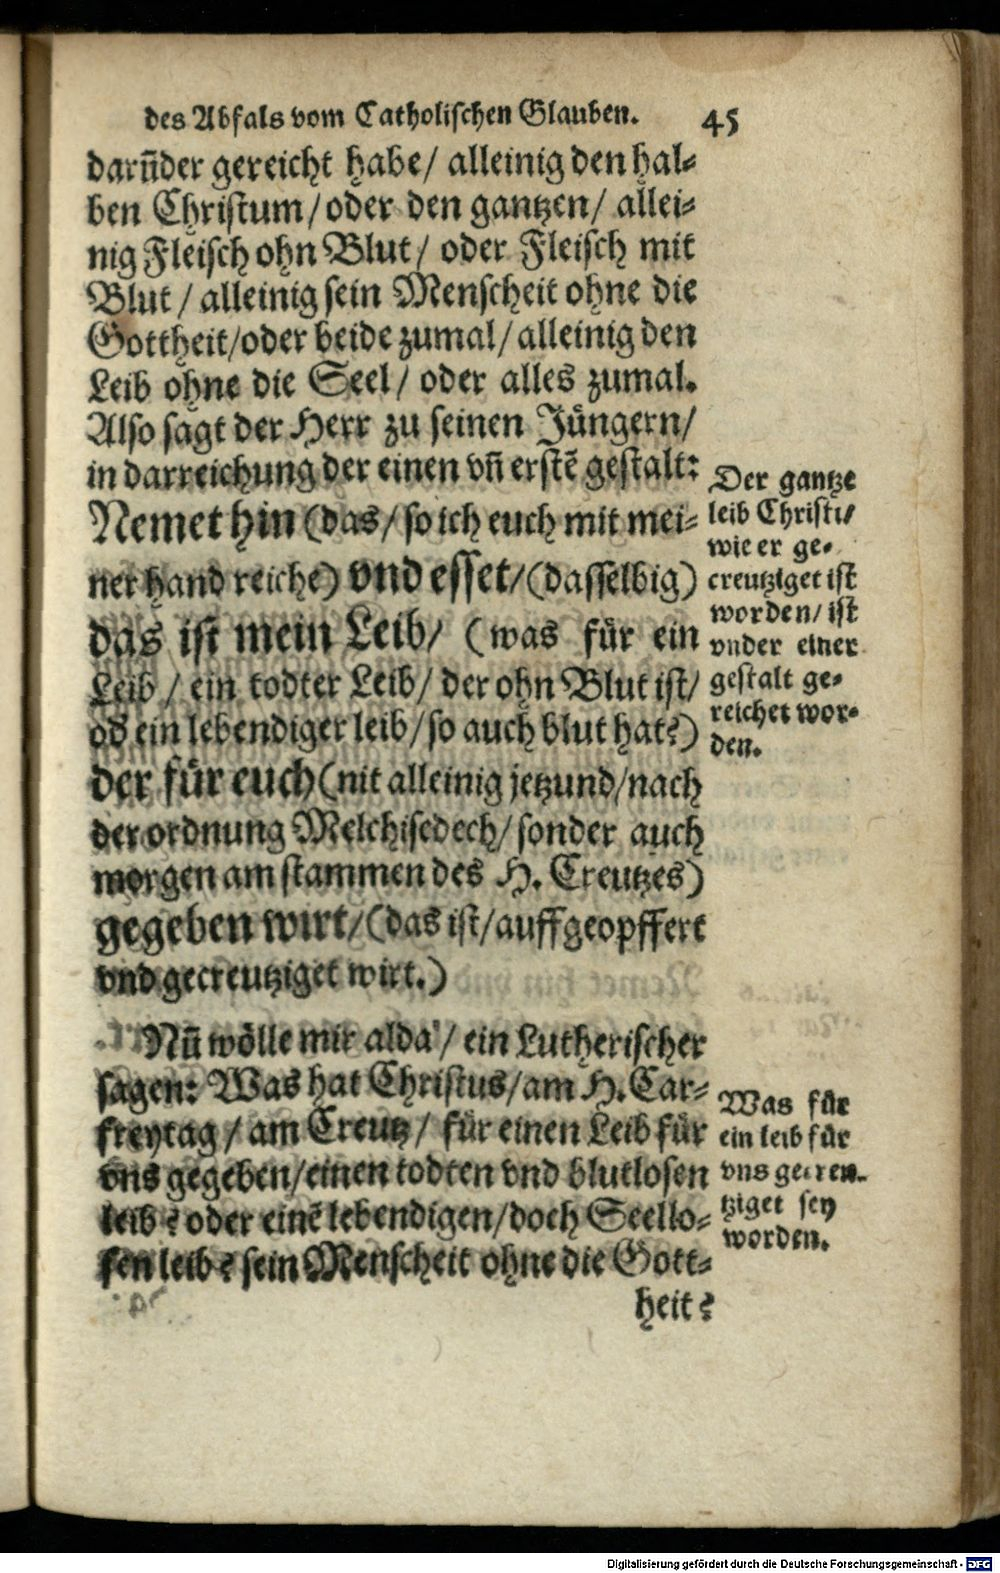 des Abfals vom Catholischen Glauben. 45
darūder gereicht habe/ alleinig den hal⸗
ben Christum/ oder den gantzen/ allei⸗
nig Fleisch ohn Blut/ oder Fleisch mit
Blut/ alleinig sein Menscheit ohne die
Gottheit/oder beide zumal/ alleinig den
Leib ohne die Seel/ oder alles zumal.
Also sagt der Herr zu seinen Jüngern/
in darreichung der einen vñ erstē gestalt:
Nemet hin (das/ so ich euch mit mei⸗
ner hand reiche) vnd esset/ (dasselbig)
das ist mein Leib/ (was für ein
Leib/ ein todter Leib/ der ohn Blut ist/
ob ein lebendiger leib/ so auch blut hat?)
der für euch (nit alleinig jetzund/ nach
der ordnung Melchisedech/ sonder auch
morgen am stammen des H. Creutzes)
gegeben wirt/ (das ist/ auffgeopffert
vnd gecreutziget wirt.)
Der gantze
leib Christi/
wie er ge⸗
creutziget ist
worden/ ist
vnder einer
gestalt ge⸗
reichet wor⸗
den.
Nū wölle mir alda/ ein Lutherischer
sagen: Was hat Christus/ am H. Car⸗
freytag/ am Creutz/ für einen Leib für
vns gegeben/ einen todten vnd blutlosen
leib? oder einē lebendigen/ doch Seello⸗
sen leib? sein Menscheit ohne die Gott⸗
heit?
Was für
ein leib für
vns gecreu⸗
tziget sey
worden.
Digitalisierung gefördert durch die Deutsche Forschungsgemeinschaft - DFG